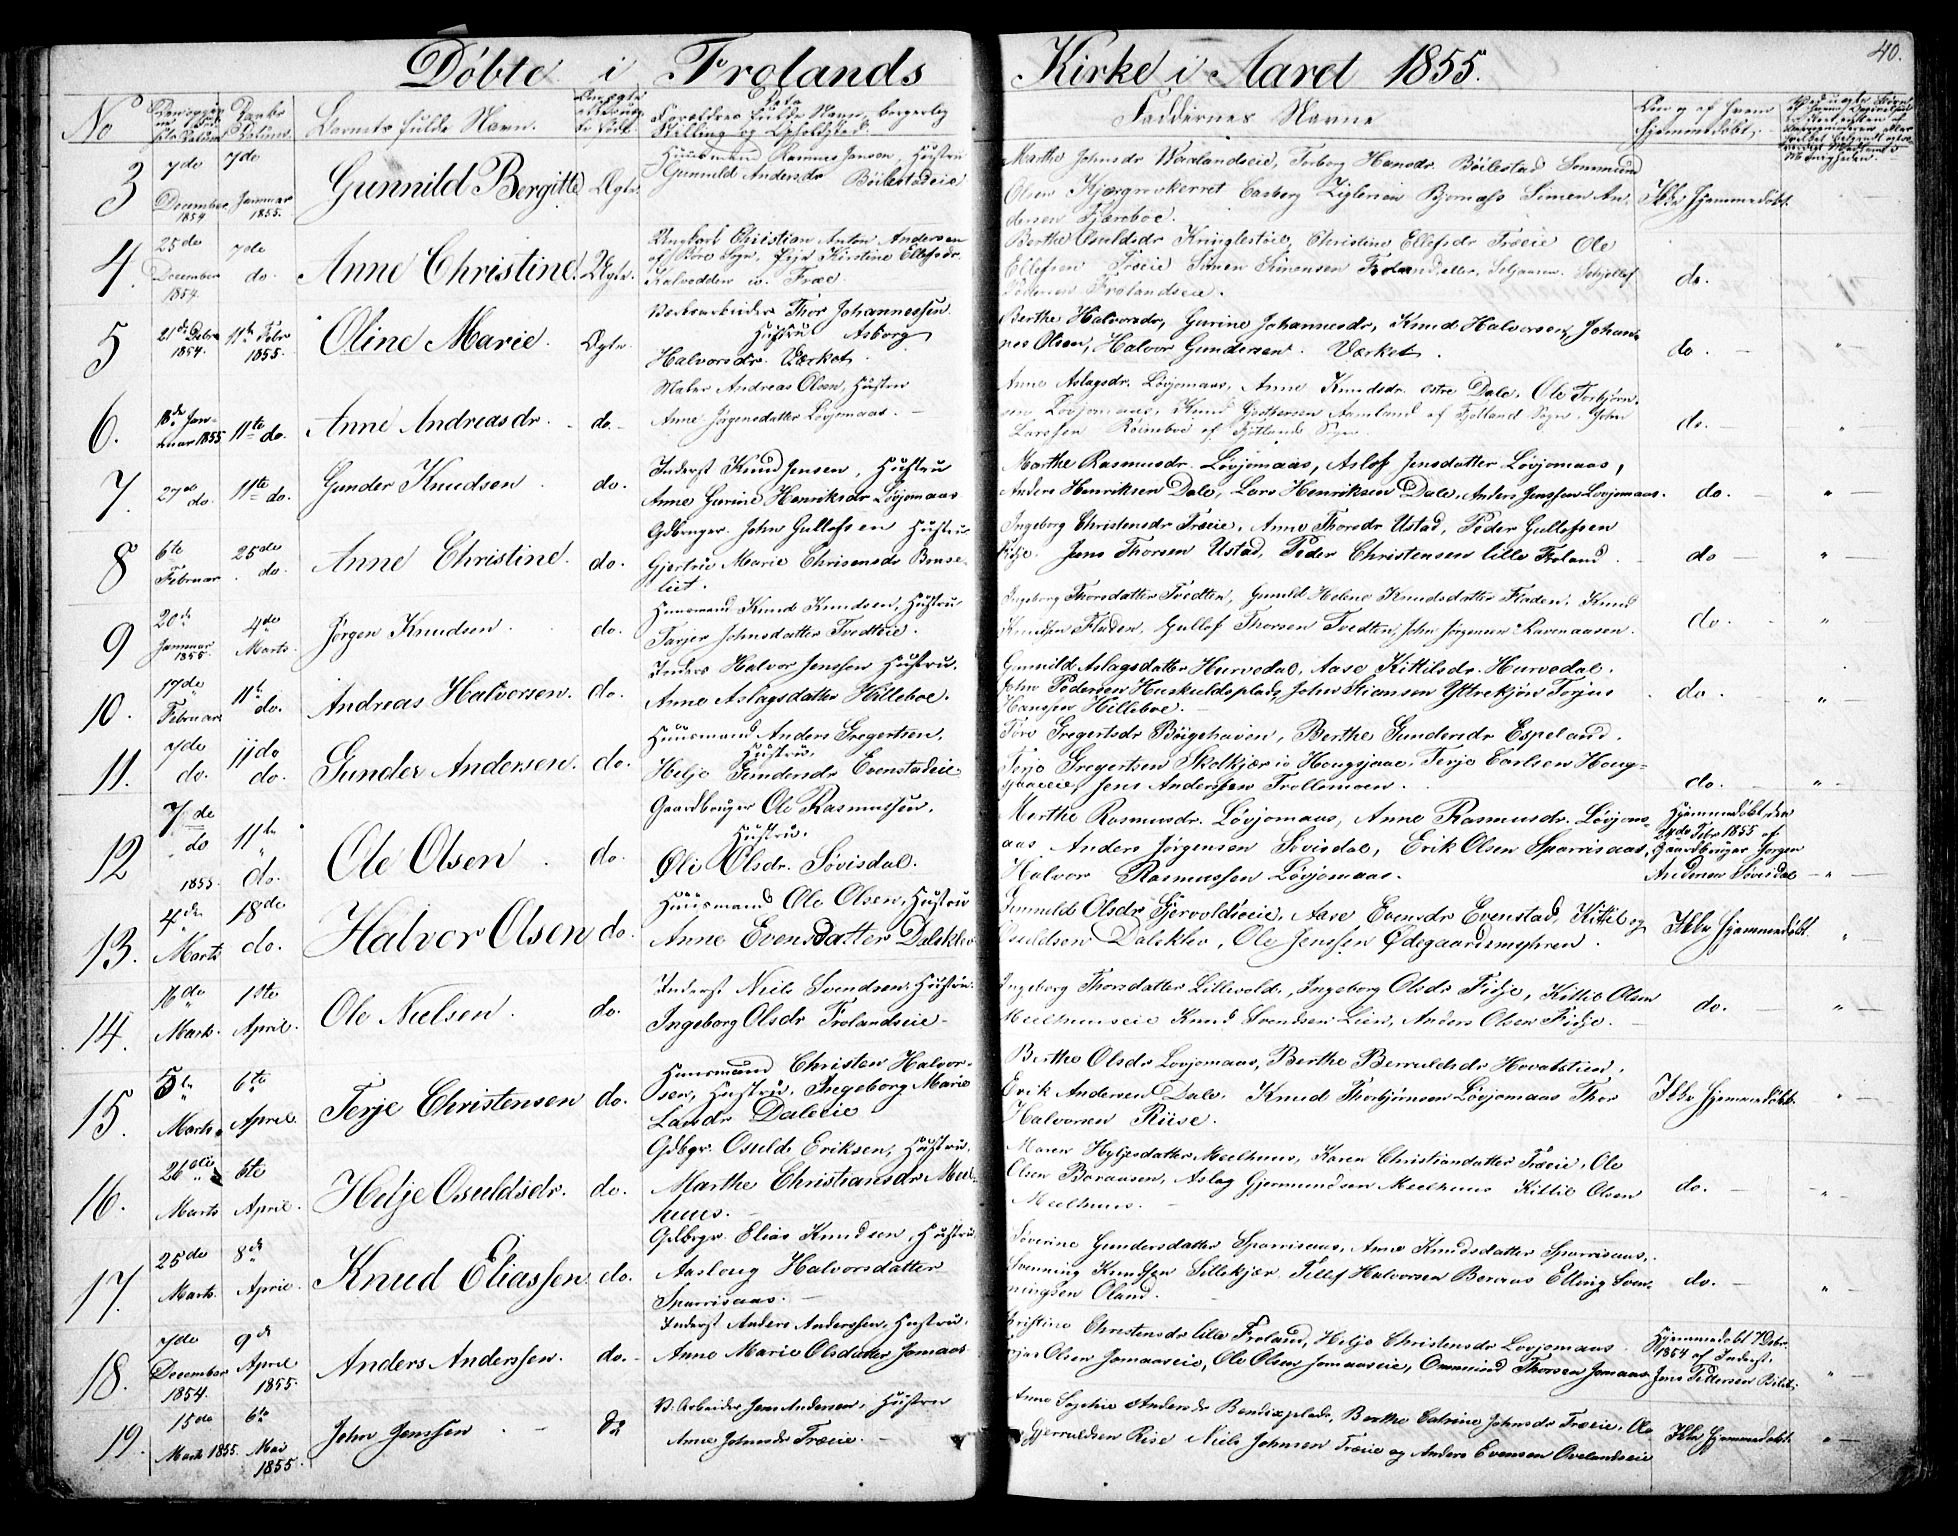 Døbte i Frolands Kirke i Aaret 1855.
40.
No
Barnets fulde Navn.
Forældres fulde Navn, borgerlig
Stilling og Opholdsted.
Faddernes Navne
3 7de December 1854 7de Januar 1855. Gunnild Bergitte Dgtr. Huusmand Jensen, Hustru
Gunnild Andersdr Böilestadeie
Marthe Johnsdr Vaarlandseie, Torborg Hansdr. Böilestad
Olsen Simen An-
dersen
Ikke Hjemmedøbt.
4. 25de December 1854. 7de do. Anne Christine. Dgtr. Ungkarl Christian Anton Andersen
Sogn, Pige Kirstine Ellefsdr.
Berthe Osuldsdr Kringlestöie, Christine Ellefsdr Træeie Ole
Ellefsen Træeie Simen Simonsen
Pedersen Frolandseie.
do.
5 21de Debr 1854. 11te Febr 1855. Oline Marie. Dgtr. Verksarbeider Thor Johannessen.
Hustru Asborg
Halvorsdr. Værket.
Berthe Halvorsdr, Gurine Johannesdr, Knud Halvorsen, Johan-
nes Olsen, Halvor Gundersen. Værket.
do.
6. 18de Jan-
uar 1855 11te do. Anne Andreasdr. do. Maler Andreas Olsen, Hustru
Anne Jørgensdatter Lövjomaas.
Anne Aslagsdr. Lövjomaas, Anne Knudsdr. østre Dale, Ole Torbjörn-
sen Lövjomaas, Knud Aamland af Sogn, John
Larssen
do.
7. 27de do. 11te do. Gunder Knudsen do. Inderst Knud Jensen, Hustru
Anne Gurine Henriksdr Lövjomaas
Marthe Rasmusdr. Lövjomaas, Aslof Jensdatter Lövjomaas,
Anders Henriksen Dale, Lars Henriksen Dale, Anders Jenssen Lovjomaas.
do.
8 6te Februar 25de do. Anne Christine. do. Gdbruger. John Gullofsen Hustru
Gjertrue Marie Chrisensdr
Ingeborg Christensdr Træeie, Anne Thorsdr Ustad, Peder Gullofsen
Jens Thorsen Ustad, Peder Christensen lille Froland.
do
9 20de Januar 1855. 4de Marts. Jörgen Knudsen do. Huusmand Knud Knudsen, Hustru
Tarjer Johnsdatter Tvedteie.
Ingeborg Thorsdatter Tvedten, Gunild Helene Knudsdatter Fladen, Knud
Knudsen Fladen, Gullof Thorsen Tvedten, John Jörgensen Ravnaasen.
do.
10. 17de Februar 11te do. Andreas Halvorsen. do. Inders Halvor Jenssen Hustru.
Anne Aslagsdatter Hilleboe.
Gunuld Aslagsdatter Hurvedal, Aase Kittilsdr. Hurvedal.
John Pedersen Huskuldsplads, John Stiansen Yttrekjön Torjus
Hanssen Hilleboe.
do.
11. 7de do. 11 do do. Gunder Andersen. do. Huusmand Anders Gregertsen,
Hustru,
Helje Gundersdr Evenstadeie
Tore Gregertsdr Böigehaven, Berthe Gundersdr Espeland.
Terje Gregertsen i Hougsjaae, Terje Carlsen Houg-
sjaaeie, Jens Anderssen Trollomoen.
do.
12 7de do 1855. 11te do. Ole Olsen. do. Gaardbruger Ole Rasmussen,
Hustru.
Oli Olsdr. Sövisdal.
Merthe Rasmusdr. Lövjomaas, Anne Rasmusdr. Lövjom-
aas Anders Jörgensen Sövisdal, Erik Olsen Sparrisaas,
Halvor Rasmussen Lövjomaas.
Hjemmedöbt den
24de Febr 1855 af
Gaardbruger Jorgen
Andersen Sövisdal
13. 4de Marts 18de do. Halvor Olsen do. Huusmand Ole Olsen, Hustru
Anne Evensdatter Dalsklev
Gunnuld Olsdr Gjervoldseie, Aase Evensdr Evenstad, Kittil og
Osuldsen Dalsklev, Ole Jenssen Ödegaardsmyhren.
Ikke Hjemmedöbt.
14. 16de Marts. 1ste April. Ole Nielsen. do. Inderst Niels Svendsen, Hustru
Ingeborg Olsdr Frolandseie
Ingeborg Thorsdatter Lillevolds, Ingeborg Olsdr Fidje, Kittil Olsen
Meelhuuseie Knud Svendsen Lien, Anders Olsen Fidje.
do.
15. 5te Marts. 6te April. Terje Christensen do. Huusmand Christen Halvor-
sen, Hustru, Ingeborg Marie
Larsdr Daleeie
Berthe Olsdr Lovjomaas, Berthe Berruldsdr Hovatstien,
Erik Andersen Dale, Knud Thorbjörnsen Lövjomaas Thor
Halvorsen Riise.
Ikke Hjemmedöbt.
16. 26de Marts 6te April. Helje Osuldsdr. do. Gdbgr. Osuld Eriksen, Hustru,
Marthe Christiansdr Meel-
huus.
Maren Hyljesdatter Meelhuus, Karen Christiandatter Træeie, Ole
Olsen Boraasen, Aslag Gjermundsen Meelhuus Kittil Olsen
Meelhuus.
do.
17. 25de Marts. 8de April. Knud Eliassen do. Gdbrgr. Elias Knudsen, Hustru,
Aasloug Halvorsdatter
Sparrisaas.
Söverine Gundersdatter Sparrisaas, Anne Knudsdatter Sparrisaas,
Svenning Knudsen Lillekjær, Tellef Halvorsen Elling Sven-
ningsen Öland.
do.
18. 7de December 1854. 9de April 1855. Anders Anderssen. do. Inderst Anders Anderssen, Hustru,
Anne Marie Olsdatter Jomaas
Kristine Christensdr lille Froland, Helje Christensdr Lovjomaas
Olsen Jomaaseie, Ole Olsen Jomaaseie, Ommund Thorsen Jomaas
Hjemmedöbt 7 Debr.
1854 af Inderst,
Jens Pedersen
19. 15de Marts 1855. 6te Mai 1855. John Jenssen do V. Arbeider Jens Andersen, Hustru
Anne Johnsdr Træeie.
Anne Sophie Andersdr Bendixplads, Berthe Catrine Johnsdr Træeie, Ole
Gjeruldsen Rise Niels Johnsen Træeie og Anders Evensen Ovelandseie
Ikke Hjemmedöbt.